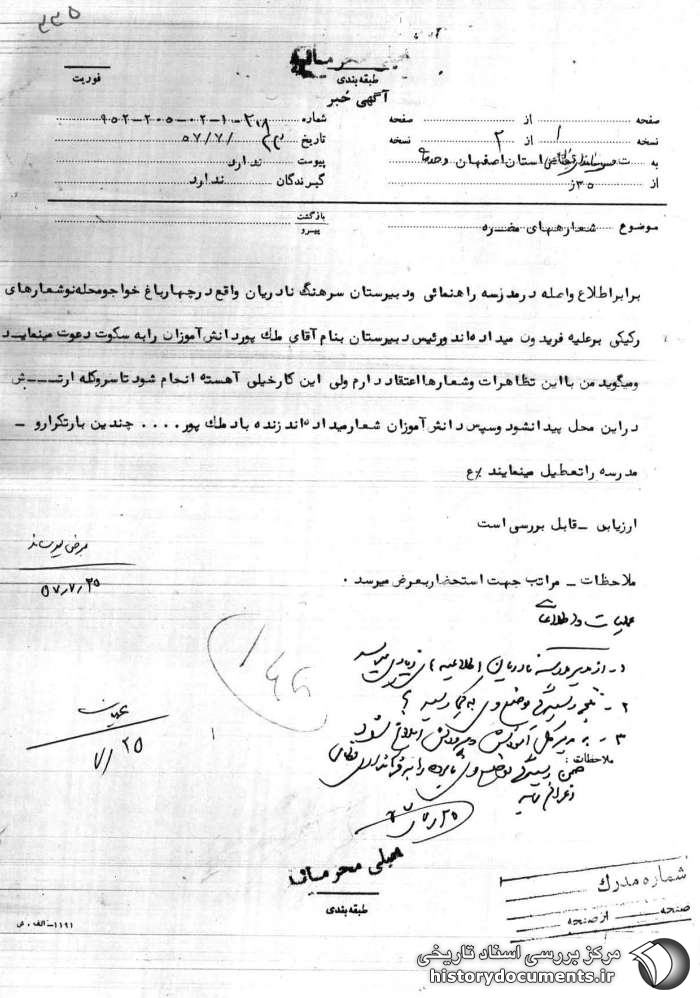 ۲۲۵
خیلی محرمانه
طبقه‌بندی
فوریت
آگهی خبر
صفحه از صفحه شماره ۹۵۲-۲۰۵-۰۲-۱-۲۰۸
نسخه ۱ از ۲ نسخه تاریخ ۵۷/۷/
به استان اصفهان وحدت پیوست ندارد
از ۳۵ز گیرندگان ندارد
موضوع شعارهای مضره بازگشت پیرو
برابر اطلاع واصله در مدرسه راهنمائی ودبیرستان سرهنگ نادریان واقع در چهارباغ خواجو محله نو شعارهای
رکیکی بر علیه فریدون میداده‌اند ورئیس دبیرستان بنام آقای ملک پور دانش آموزان را به سکوت دعوت مینماید
ومیگوید من با این تظاهرات وشعارها اعتقاد دارم ولی این کار خیلی آهسته انجام شود تا سروکله ارتش
در این محل پیدا نشود وسپس دانش آموزان شعار میداده‌اند زنده باد ملک پور .... چندین بار تکرار و -
مدرسه را تعطیل مینمایند ع
ارزیابی - قابل بررسی است
بعرض میرساند
۵۷/۷/۲۵
ملاحظات - مراتب جهت استحضار بعرض میرسد .
عملیات و اطلاعات
۱- از مدیر مدرسه نادریان اطلاعیه های زیادی میرسد
۲- نتیجه رسیدگی وضع وی به کجا رسید ؟
۳- به مدیر کل آموزش و پرورش ابلاغ شود
ملاحظات :
ضمن رسیدگی وضع وی نامبرده را به فرمانداری نظامی
اعزام نمایید
۲۵
۷/۲۵
خیلی محرمانه
طبقه‌بندی
شماره مدرک
صفحه از صفحه
۱۱۹۱-الف . ش
مرکز بررسی اسناد تاریخی
historydocuments.ir